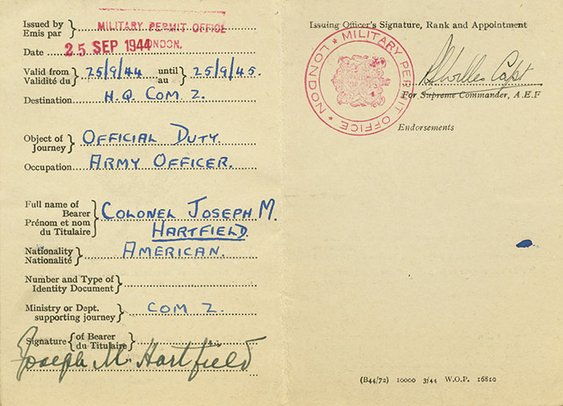 Issued by
Emis par
MILITARY PERMIT OFFICE
LONDON.
Date
25 SEP 1944
Valid from 25/9/44 until 25/9/45.
Validité du au
Destination H.Q. COM Z.
Object of
Journey
OFFICIAL DUTY.
Occupation ARMY OFFICER.
Full name of
Bearer
Prénom et nom
du Titulaire
COLONEL JOSEPH M.
HARTFIELD.
Nationality
Nationalité
AMERICAN.
Number and Type of
Identity Document
Ministry or Dept.
supporting journey
COM Z.
Signature of Bearer
du Titulaire
Joseph M. Hartfield
Issuing Officer's Signature, Rank and Appointment
MILITARY PERMIT OFFICE
LONDON
Capt
For Supreme Commander, A.E.F
Endorsements
(B44/72) 10000 3/44 W.O.P. 16810